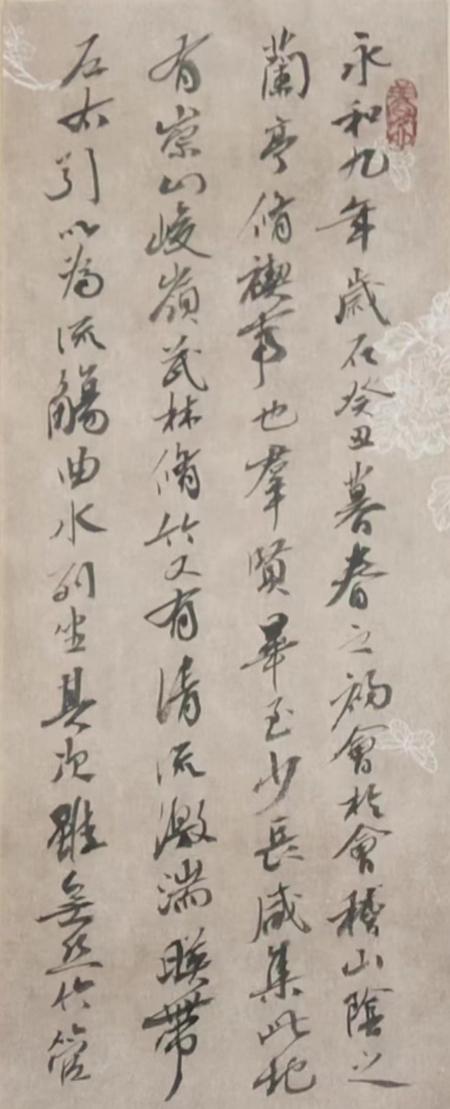 永和九年歲在癸丑暮春之初會於會稽山陰之
蘭亭脩禊事也羣賢畢至少長咸集此地
有崇山峻嶺茂林脩竹又有清流激湍暎帶
左右引以為流觴曲水列坐其次雖無絲竹管